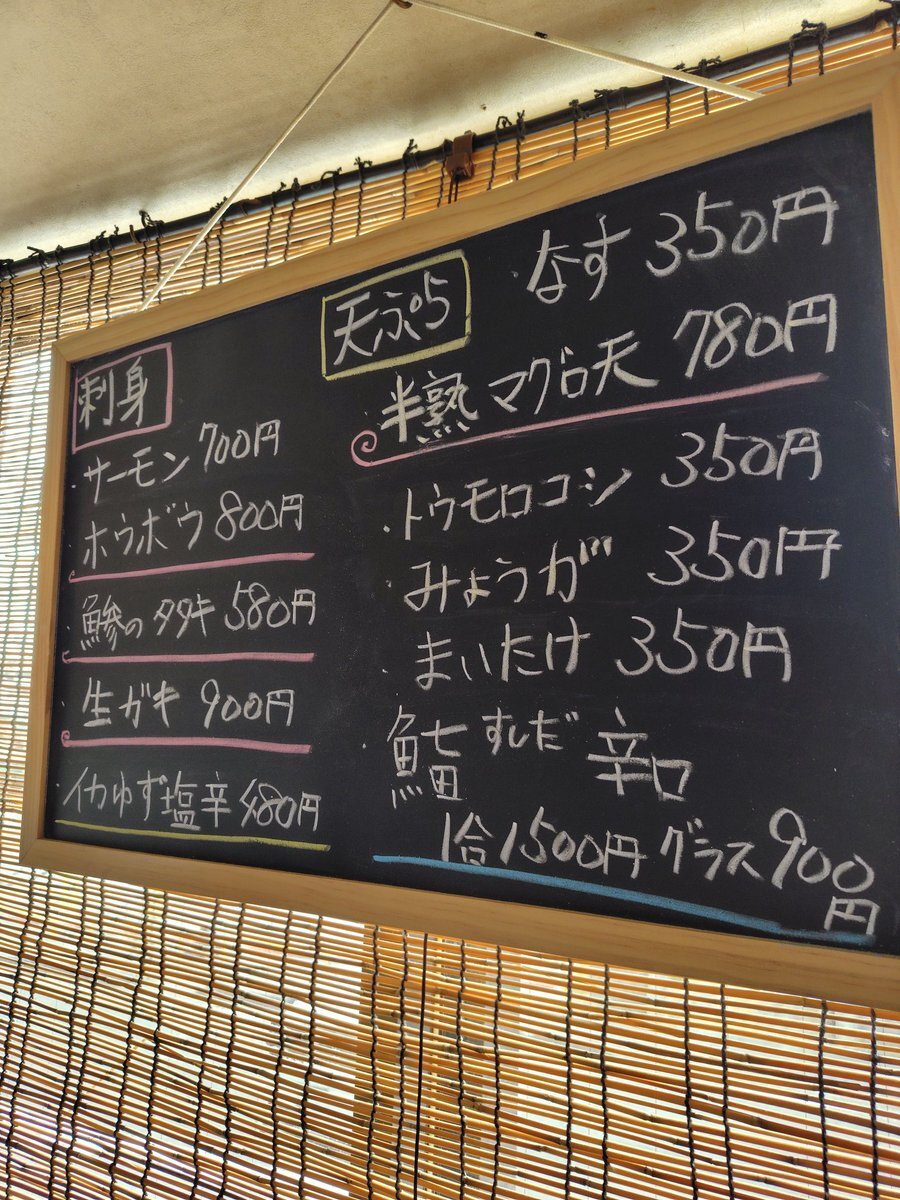 刺身
・サーモン 700円
・ホウボウ 800円
・鯵のタタキ 580円
・生ガキ 900円
・イカゆず塩辛
天ぷら
・なす 350円
・半熟マグロ天 780円
・トウモロコシ 350円
・みょうが 350円
・まいたけ 350円
・すしだ 辛口
1合1500円 グラス900
円